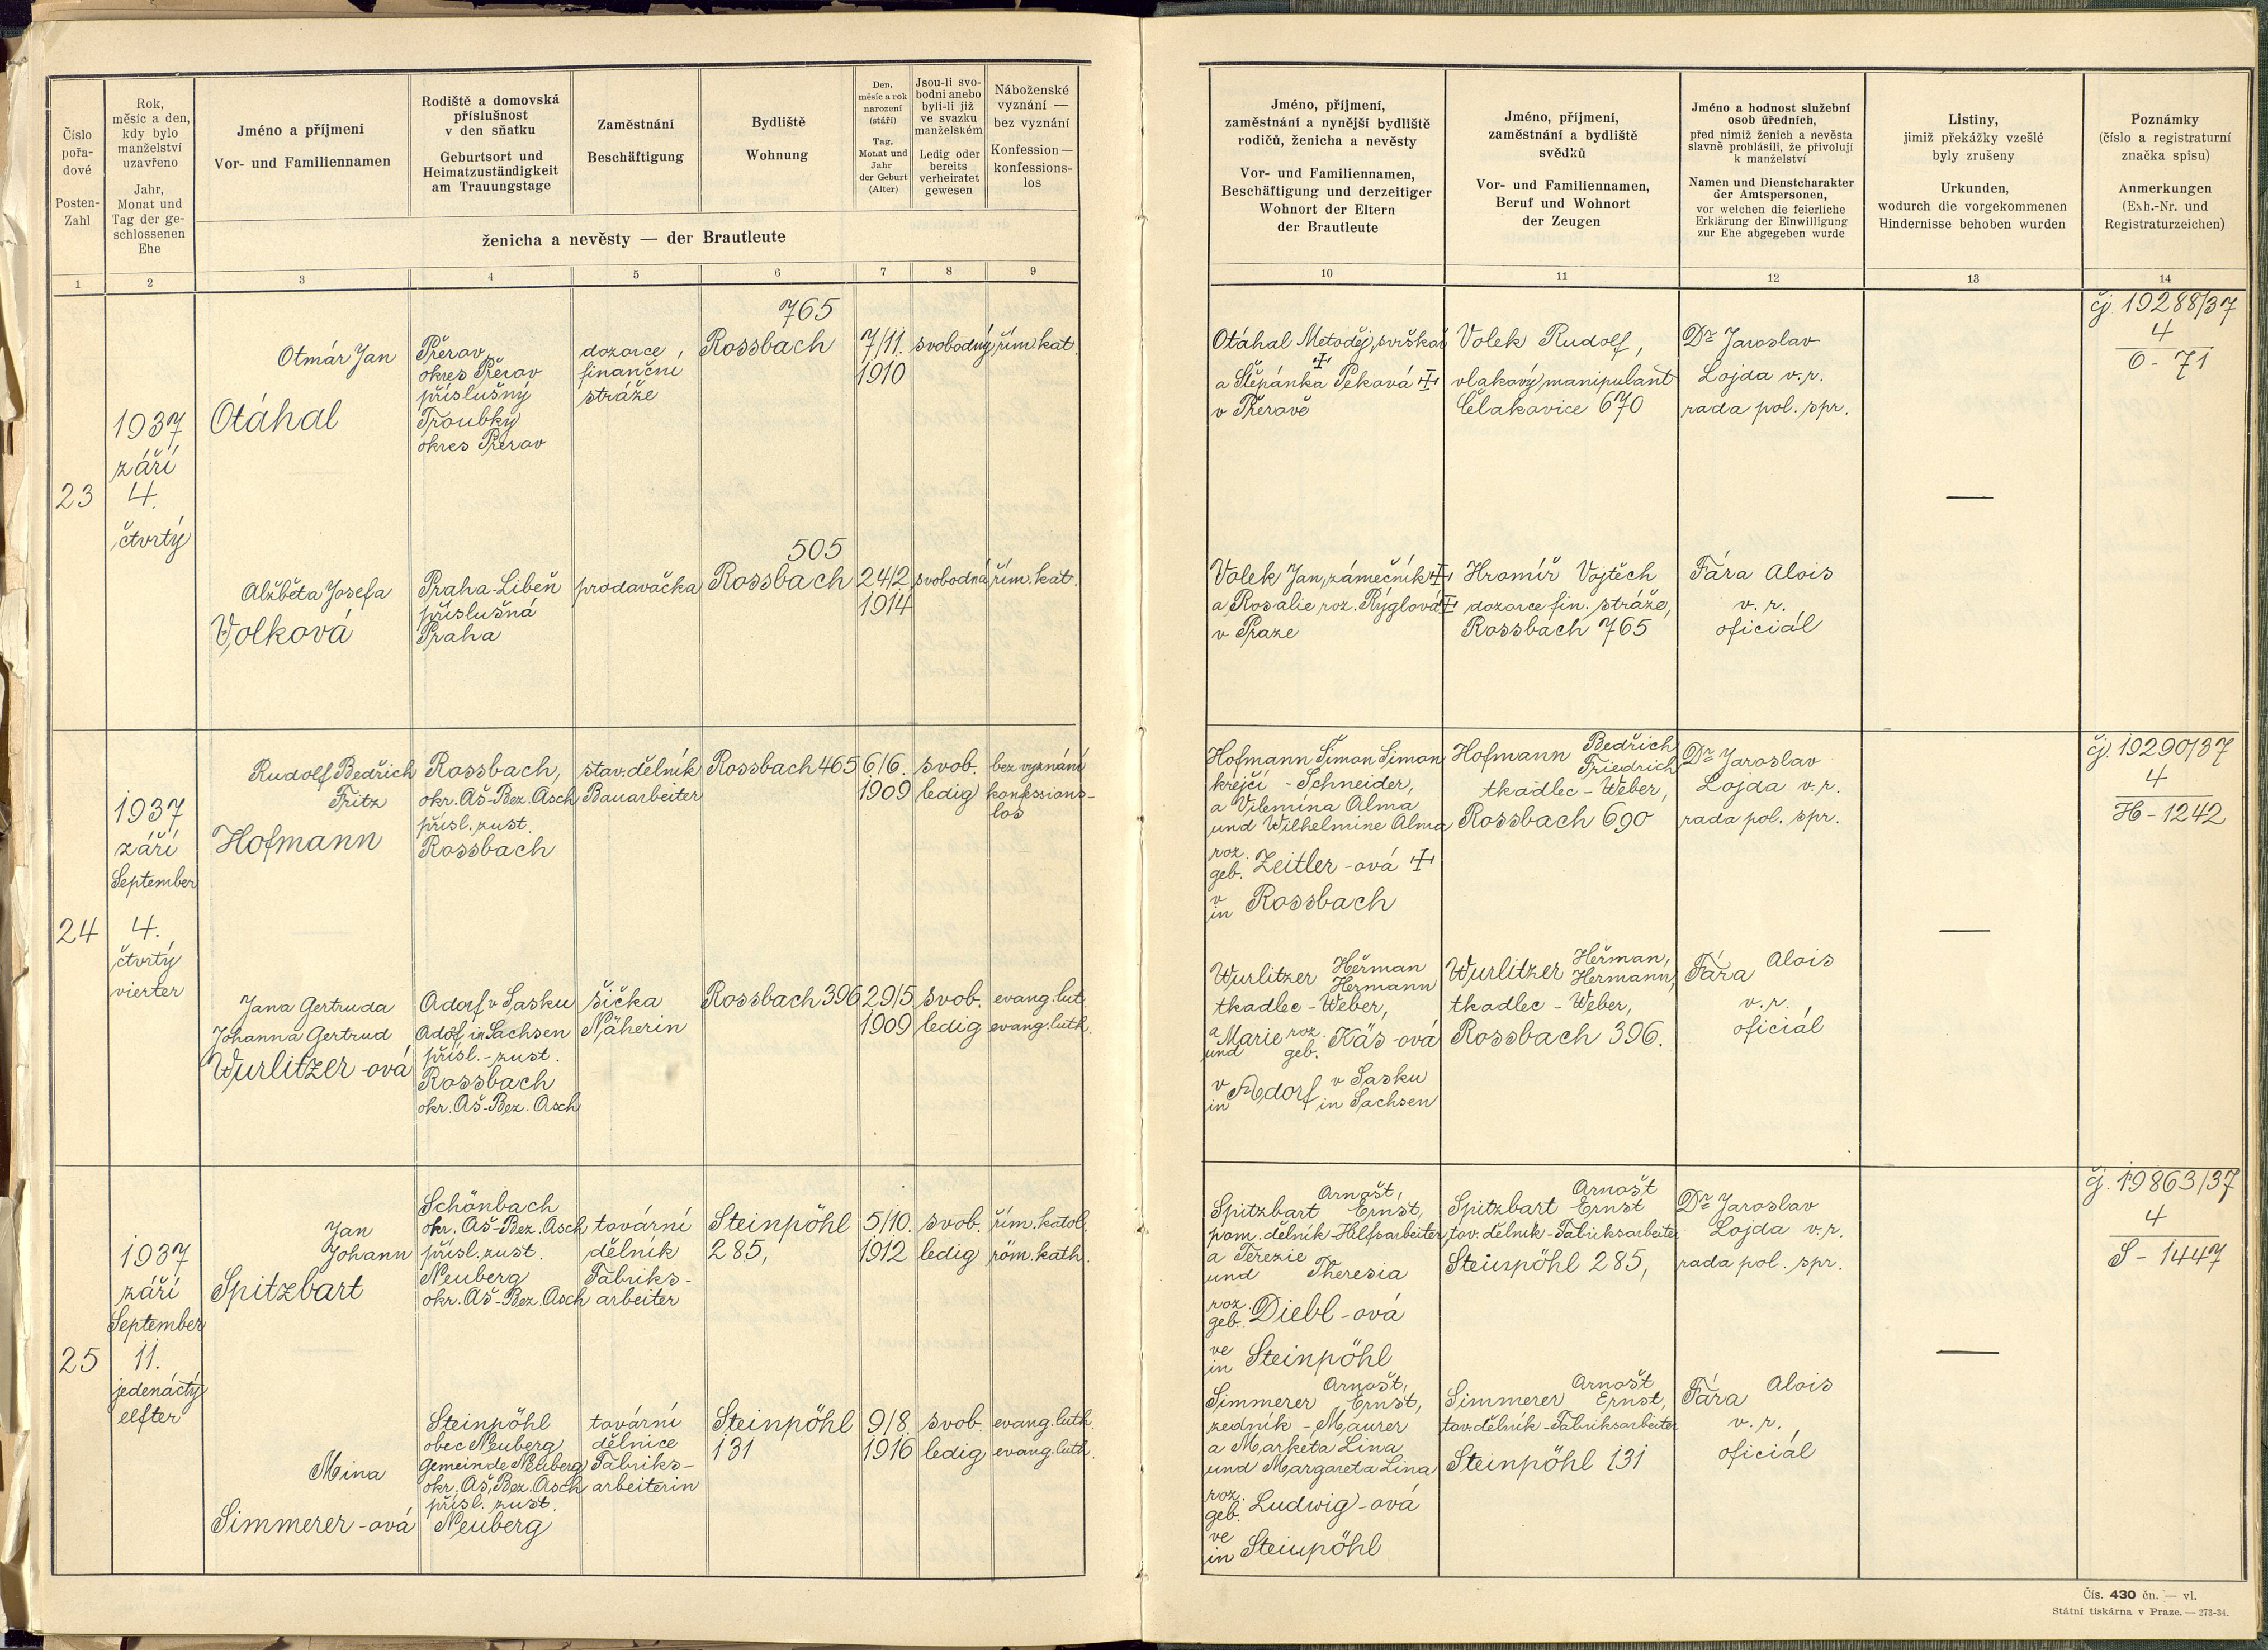 Číslo
pořa-
dové
Posten-
Zahl
Rok,
měsíc a den,
kdy bylo
manželství
uzavřeno
Jahr,
Monat und
Tag der ge-
schlossenen
Ehe
Jméno a příjmení
Vor- und Familiennamen
Rodiště a domovská
příslušnost
v den sňatku
Geburtsort und
Heimatzuständigkeit
am Trauungstage
Zaměstnání
Beschäftigung
Bydliště
Wohnung
Den,
měsíc a rok
narození
(stáří)
Tag,
Monat und
Jahr
der Geburt
(Alter)
Jsou-li svo-
bodni anebo
byli-li již
ve svazku
manželském
Ledig oder
bereits
verheiratet
gewesen
Náboženské
vyznání —
bez vyznání
Konfession —
konfessions-
los
ženicha a nevěsty — der Brautleute
1 2 3 4 5 6 7 8 9
23
1937
září
4.
čtvrtý
Otmár Jan
Otáhal
Přerov,
okres Přerov
příslušný
Troubky
okres Přerov
dozorce
finanční
stráže
765
Rossbach
7/11.
1910
svobodný
řím. kat.
Alžběta Josefa
Volková
Praha-Libeň
příslušná
Praha
prodavačka
505
Rossbach
24/2
1914
svobodná
řím. kat.
24
1937
září
September
4.
čtvrtý
vierter
Rudolf Bedřich
Fritz
Hofmann
Rossbach,
okr. Aš-Bez. Asch
přísl. zust.
Rossbach
stav. dělník
Bauarbeiter
Rossbach 465
6/6.
1909
svob.
ledig
bez vyznání
konfessions-
los
Jana Gertruda
Johanna Gertrud
Wurlitzer-ová
Adorf v Sasku
Adof in Sachsen
přísl.-zust.
Rossbach
okr. Aš-Bez. Asch
šička
Näherin
Rossbach 396
29/5
1909
svob.
ledig
evang. lut.
evang. luth.
25
1937
září
September
11.
jedenáctý
elfter
Jan
Johann
Spitzbart
Schönbach
okr. Aš-Bez. Asch
přísl. zust.
Neuberg
okr. Aš-Bez. Asch
tovární
dělník
Fabriks-
arbeiter
Steinpöhl
285,
5/10.
1912
svob.
ledig
řím. katol.
röm. kath.
Mina
Simmerer-ová
Steinpöhl
obec Neuberg
Gemeinde Neuberg
okr. Aš, Bez. Asch
přísl. zust.
Neuberg
tovární
dělnice
Fabriks-
arbeiterin
Steinpöhl
131
9/8.
1916
svob.
ledig
evang. luth.
evang. luth.
Jméno, příjmení,
zaměstnání a nynější bydliště
rodičů, ženicha a nevěsty
Vor- und Familiennamen,
Beschäftigung und derzeitiger
Wohnort der Eltern
der Brautleute
Jméno, příjmení,
zaměstnání a bydliště
svědků
Vor- und Familiennamen,
Beruf und Wohnort
der Zeugen
Jméno a hodnost služební
osob úředních,
před nimiž ženich a nevěsta
slavně prohlásili, že přivolují
k manželství
Namen und Dienstcharakter
der Amtspersonen,
vor welchen die feierliche
Erklärung der Einwilligung
zur Ehe abgegeben wurde
Listiny,
jimiž překážky vzešlé
byly zrušeny
Urkunden,
wodurch die vorgekommenen
Hindernisse behoben wurden
Poznámky
(číslo a registraturní
značka spisu)
Anmerkungen
(Exh.-Nr. und
Registraturzeichen)
10 11 12 13 14
Otáhal Metoděj, svrškař
a Štěpánka Peková
v Přerově
Volek Rudolf,
vlakový manipulant
Čelakovice 670
Dr Jaroslav
Lojda v.r.
rada pol. spr.
—
čj 19288/37
4
O-71
Volek Jan, zámečník
a Rosalie roz. Rýglová
v Praze
Hromíř Vojtěch
dozorce fin. stráže,
Rossbach 765
Fára Alois
v. r.
oficiál
Hofmann Šimon Simon
krejčí - Schneider,
a Vilemína Alma
und Wilhelmine Alma
roz.
geb. Zeitler-ová
v
in Rossbach
Hofmann Bedřich
Friedrich
tkadlec - Weber,
Rossbach 690
Dr Jaroslav
Lojda v.r.
rada pol. spr.
—
čj. 19290/37
4
H-1242
Wurlitzer Heřman
Hermann
tkadlec - Weber,
a Marie roz.
und geb. Käs-ová
v Adorf v Sasku
in in Sachsen
Wurlitzer Heřman,
Hermann,
tkadlec - Weber,
Rossbach 396.
Fára Alois
v.r.
oficiál
Spitzbart Arnošt,
Ernst,
pom. dělník-Hilfsarbeiter,
a Terezie
und Theresia
roz.
geb. Diebl-ová
ve
in Steinpöhl
Spitzbart Arnošt
Ernst
tov. dělník-Fabriksarbeiter
Steinpöhl 285,
Dr Jaroslav
Lojda v.r.
rada pol. spr.
—
čj. 19863/37
4
S-1447
Simmerer Arnošt,
Ernst,
zedník - Maurer
a Markéta Lina
und Margareta Lina
roz.
geb. Ludwig-ová
ve
in Steinpöhl
Simmerer Arnošt
Ernst,
tov. dělník-Fabriksarbeiter
Steinpöhl 131
Fára Alois
v.r.
oficiál
Čís. 430 čn. — vl.
Státní tiskárna v Praze. — 273-34.